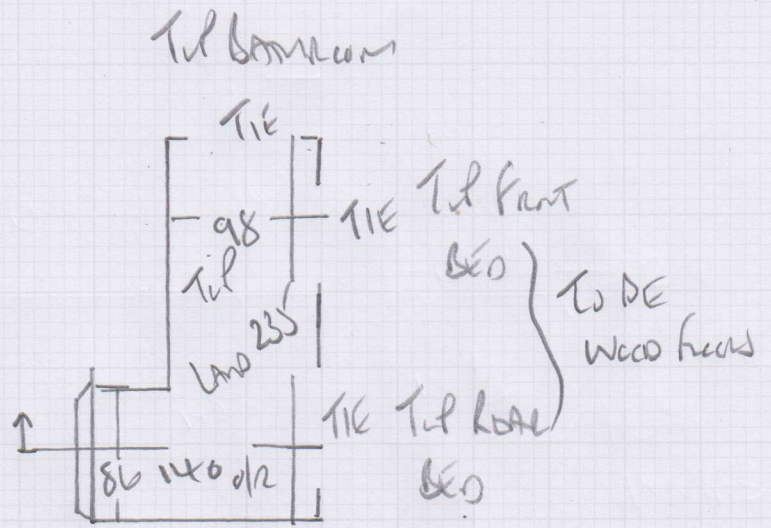 T/P BATHROOM
TIE
98
TIE T/P FRONT
BED
T/P
LAND 235
TO BE
WOOD FLOORS
TIE T/P REAR
BED
86 140 O/R